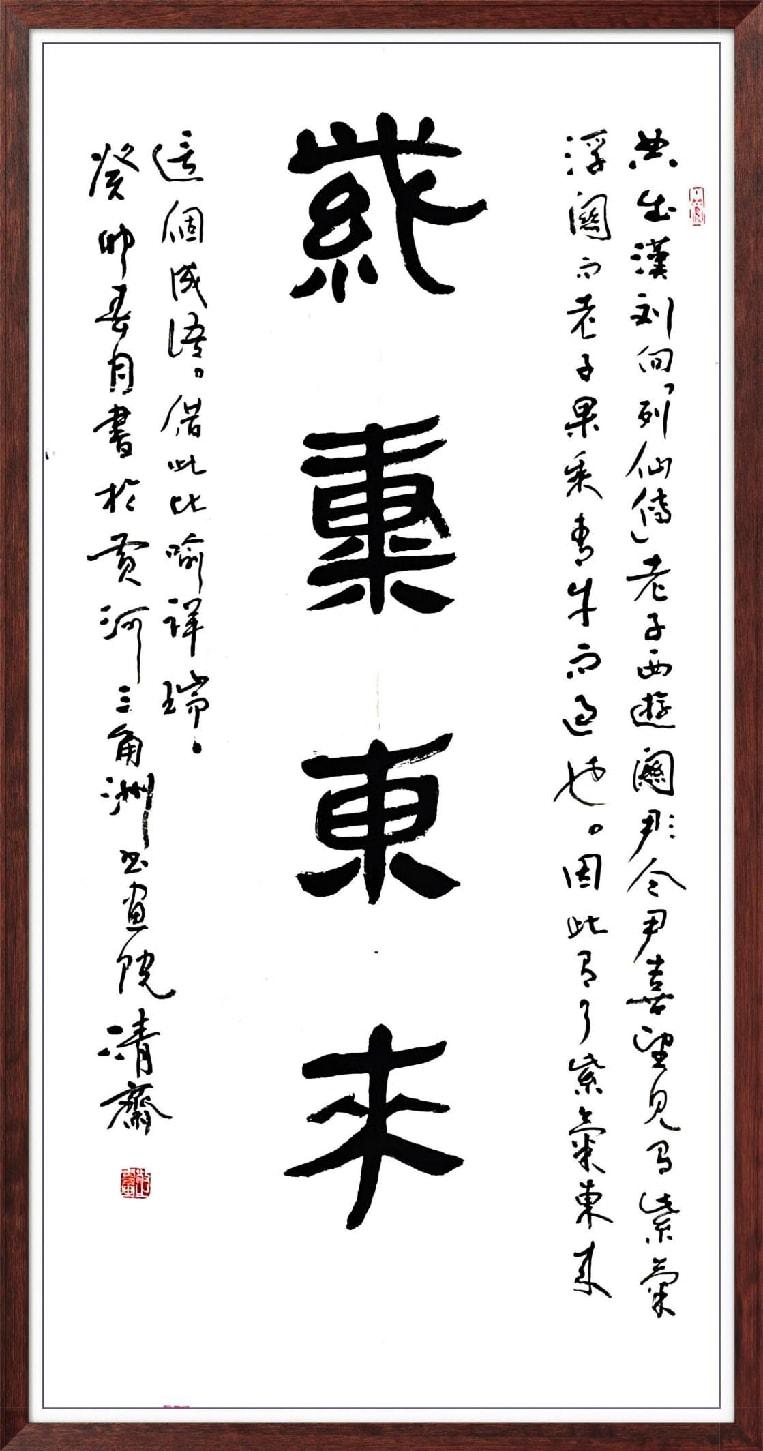 紫氣東來
典出漢刘向「列仙傳」老子西遊關尹令尹喜望見有紫氣
浮關而老子果乘青牛而過也。因此有了紫氣東來
這個成語。借此比喻祥瑞。
癸卯春月書於黄河三角洲书画院清齋